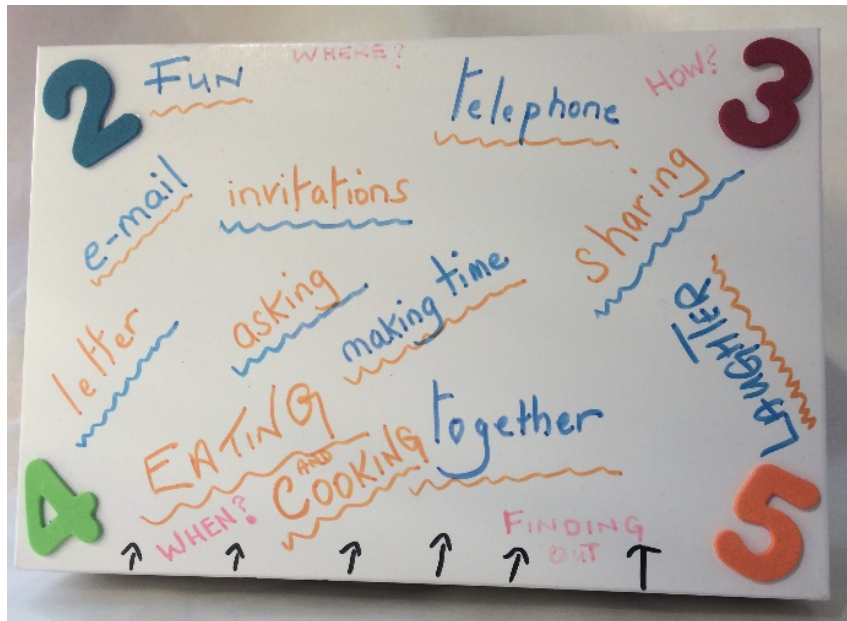 2
FUN
WHERE?
telephone
HOW?
3
e-mail
invitations
sharing
letter
asking
making time
LAUGHTER
EATING
AND
COOKING
together
4
WHEN?
FINDING
OUT
5